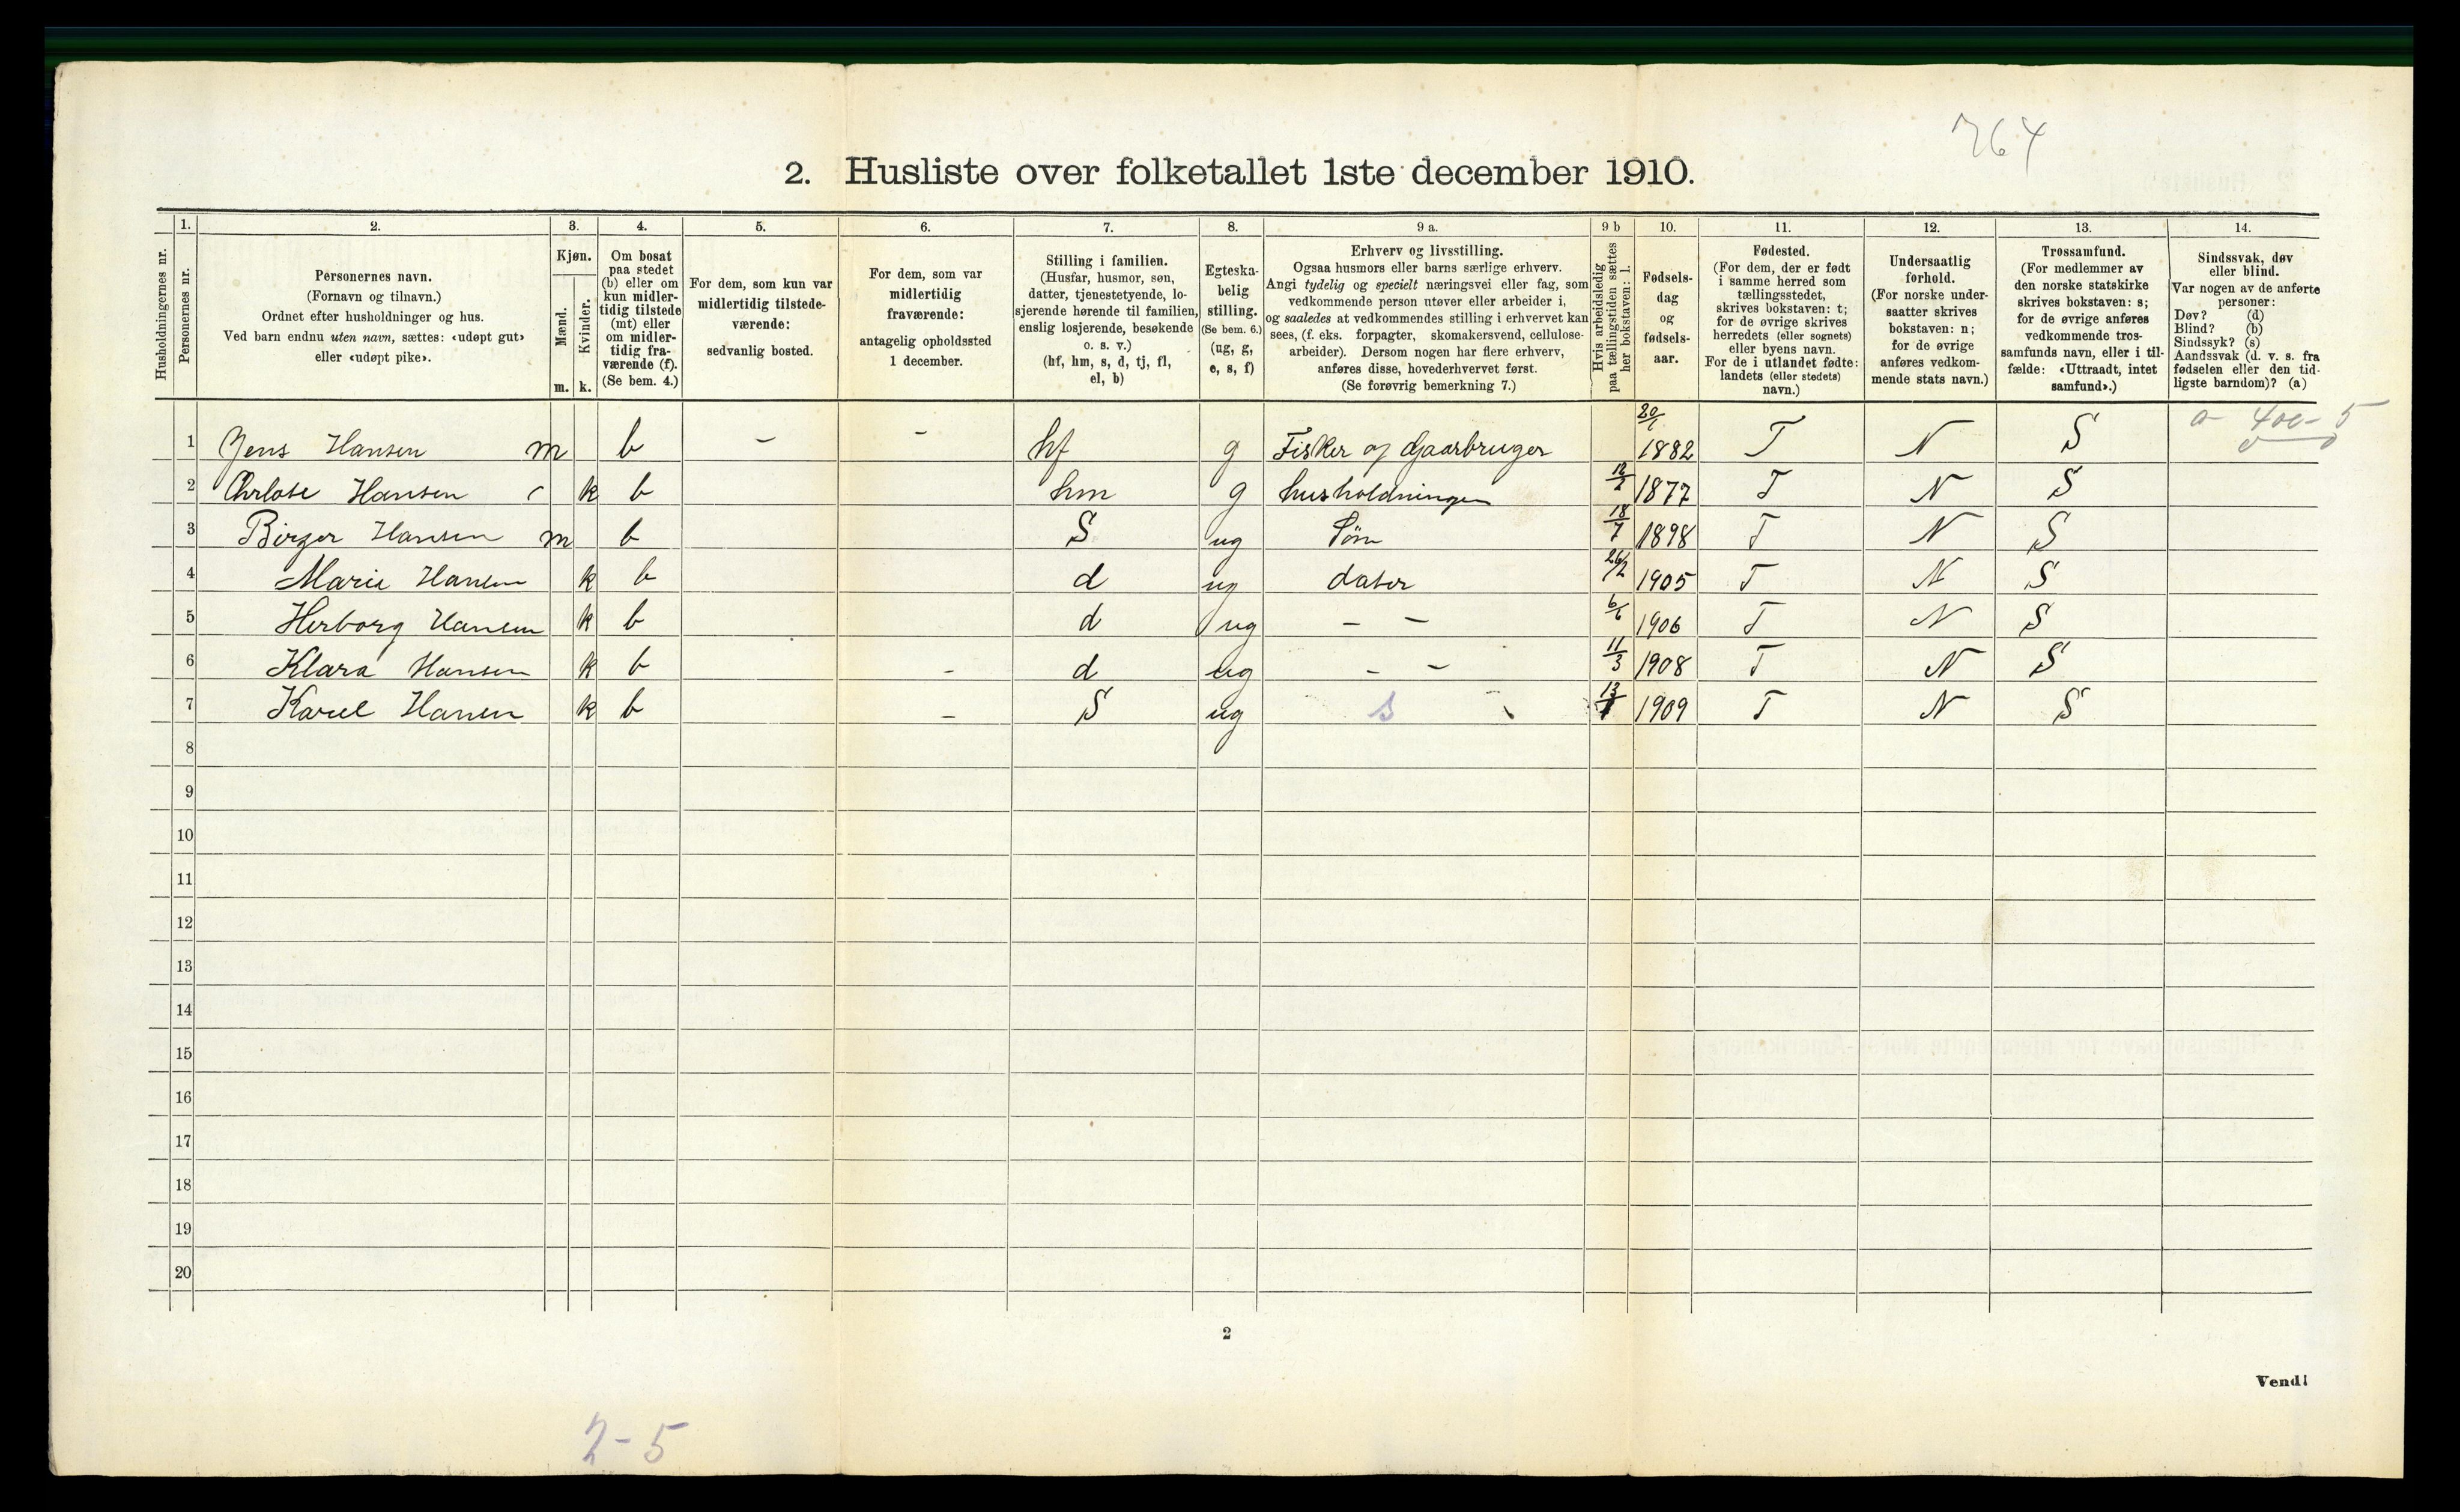 764
2. Husliste over folketallet 1ste december 1910.
Husholdningernes nr.
1. Personernes nr.
2. Personernes navn. (Fornavn og tilnavn.) Ordnet efter husholdninger og hus. Ved barn endnu uten navn, sættes: «udøpt gut» eller «udøpt pike».
3. Kjøn. Mænd. m. Kvinder. k.
4. Om bosat paa stedet (b) eller om kun midler-tidig tilstede (mt) eller om midler-tidig fra-værende (f). (Se bem. 4.)
5. For dem, som kun var midlertidig tilstede-værende: sedvanlig bosted.
6. For dem, som var midlertidig fraværende: antagelig opholdssted 1 december.
7. Stilling i familien. (Husfar, husmor, søn, datter, tjenestetyende, lo-sjerende hørende til familien, enslig losjerende, besøkende o. s. v.) (hf, hm, s, d, tj, fl, el, b)
8. Egteska-belig stilling. (Se bem. 6.) (ug, g, e, s, f)
9 a. Erhverv og livsstilling. Ogsaa husmors eller barns særlige erhverv. Angi tydelig og specielt næringsvei eller fag, som vedkommende person utøver eller arbeider i, og saaledes at vedkommendes stilling i erhvervet kan sees, (f. eks. forpagter, skomakersvend, cellulose-arbeider). Dersom nogen har flere erhverv, anføres disse, hovederhvervet først. (Se forøvrig bemerkning 7.)
9 b Hvis arbeidsledig paa tællingstiden sættes her bokstaven: l.
10. Fødsels-dag og fødsels-aar.
11. Fødested. (For dem, der er født i samme herred som tællingsstedet, skrives bokstaven: t; for de øvrige skrives herredets (eller sognets) eller byens navn. For de i utlandet fødte: landets (eller stedets) navn.)
12. Undersaatlig forhold. (For norske under-saatter skrives bokstaven: n; for de øvrige anføres vedkom-mende stats navn.)
13. Trossamfund. (For medlemmer av den norske statskirke skrives bokstaven: s; for de øvrige anføres vedkommende tros-samfunds navn, eller i til-fælde: «Uttraadt, intet samfund».)
14. Sindssvak, døv eller blind. Var nogen av de anførte personer: Døv? (d) Blind? (b) Sindssyk? (s) Aandssvak (d. v. s. fra fødselen eller den tid-ligste barndom)? (a)
1 Jens Hansen m b - - hf g Fisker og Gaarbruger 1882 T N S
2 Hansen k b hm g husholdningen 1877 T N S
3 Birger Hansen m b S ug Søn 18/7 1898 T N S
4 Marie Hansen k b d ug dater 26/2 1905 T N S
5 Herborg Hansen k b d ug - - 6/6 1906 T N S
6 Klara Hansen k b - d ug - - 11/3 1908 T N S
7 Karel Hansen k b - S ug s 1909 T N S
8
9
10
11
12
13
14
15
16
17
18
19
20
2
Vend!
2-5